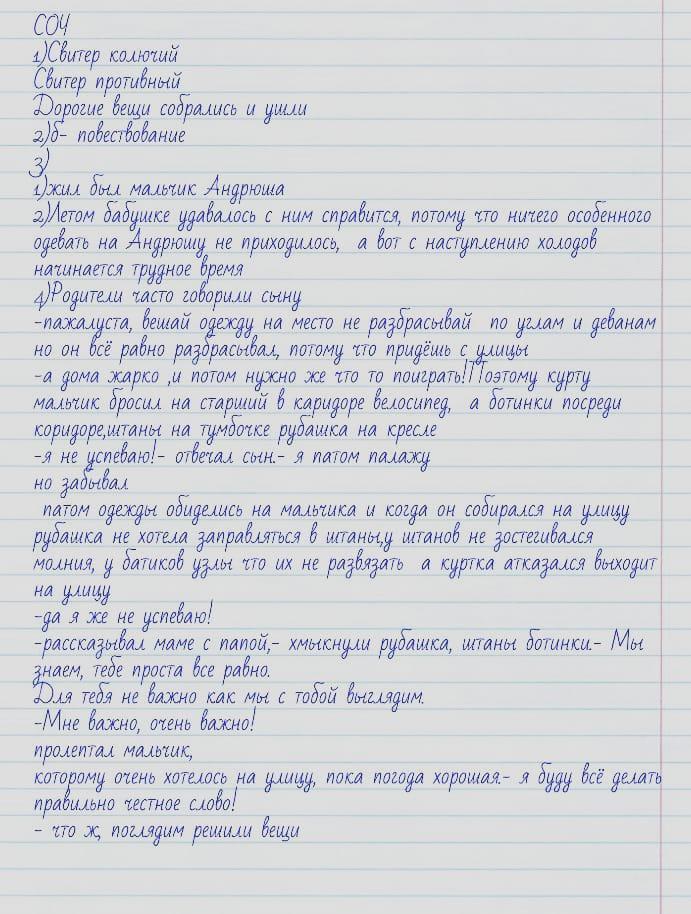 СОЧ
1)Свитер колючий
Свитер противный
Дорогие вещи собрались и ушли
2)б- повествование
3)
1)жил был мальчик Андрюша
2)Летом бабушке удавалось с ним справится, потому что ничего особенного
одевать на Андрюшу не приходилось, а вот с наступлению холодов
начинается трудное время
4)Родители часто говорили сыну
-пажалуста, вешай одежду на место не разбрасывай по углам и деванам
но он всё равно разбрасывал, потому что придёшь с улицы
-а дома жарко ,и потом нужно же что то поиграть!Поэтому курту
мальчик бросил на старший в каридоре велосипед, а ботинки посреди
коридоре,штаны на тумбочке рубашка на кресле
-я не успеваю!- отвечал сын.- я патом палажу
но забывал
патом одежды обиделись на мальчика и когда он собирался на улицу
рубашка не хотела заправляться в штаны,у штанов не зостегивался
молния, у батиков узлы что их не развязать а куртка атказался выходит
на улицу
-да я же не успеваю!
-рассказывал маме с папой,- хмыкнули рубашка, штаны ботинки.- Мы
знаем, тебе проста все равно.
Для тебя не важно как мы с тобой выглядим.
-Мне важно, очень важно!
пролептал мальчик,
которому очень хотелось на улицу, пока погода хорошая.- я буду всё делать
правильно честное слово!
- что ж, поглядим решили вещи